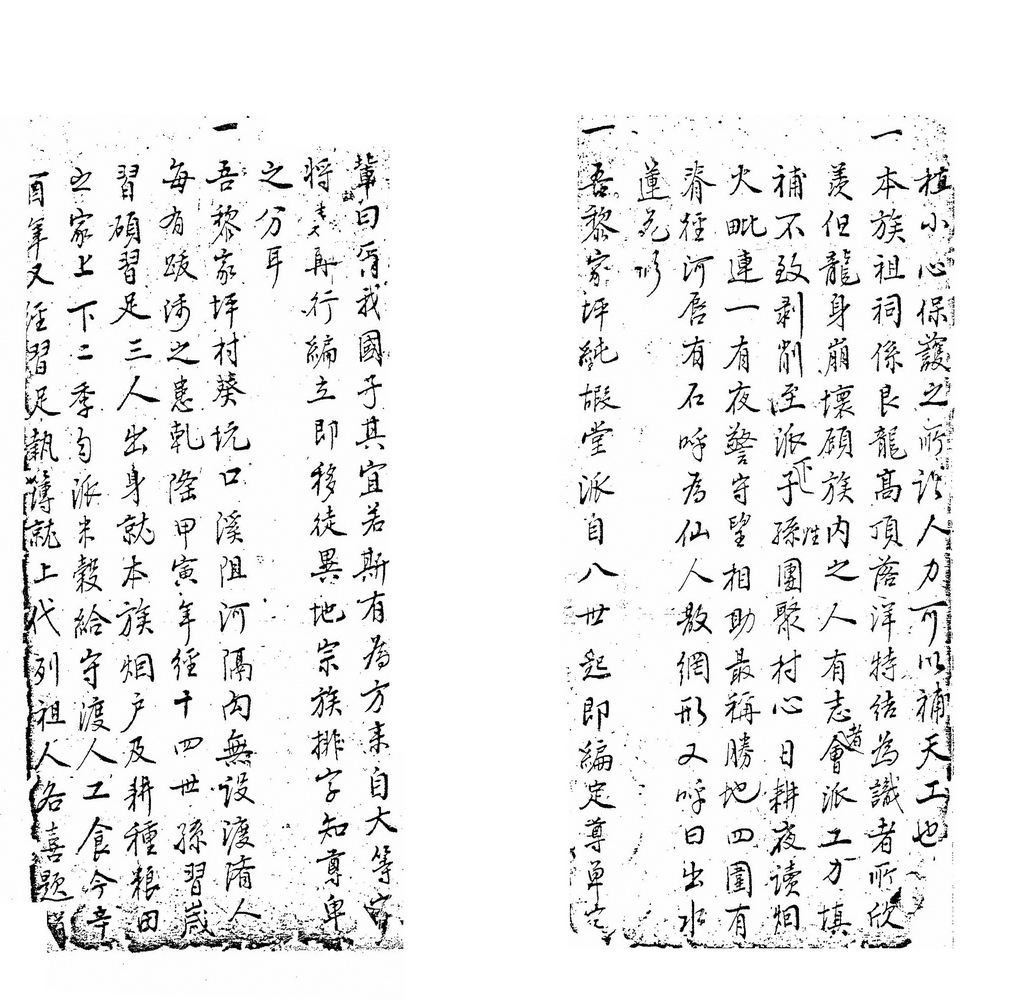 植小心保護之所謂人力可以補天工也
一本族祖祠係良龍高頂落洋特結為識者所欣
羡但龍身崩壞碩族內之人有志者會派工力填
補不致剥削至派下子孫團聚村心日耕夜讀烟
火毗連一有夜警守望相助最稱勝地四圍有
脊徑河唇有石呼為仙人散網形又呼曰出水
蓮花形
一吾黎家坪純嘏堂派自八世起即編定尊卑字
輩曰 我國子其宜若斯有為方來自大等字
將 再行編立即移徒異地宗族排字知尊卑
之分耳
一吾黎家坪村葵坑口溪阻河隔內無設渡濟人
每有跋涉之患乹隆甲寅年經十四世孫習崴
習碩習足三人出身就本族烟户及耕種粮田
之家上下二季勻派米穀給守渡人工食今辛
酉年又經習足執簿就上代列祖人名喜題